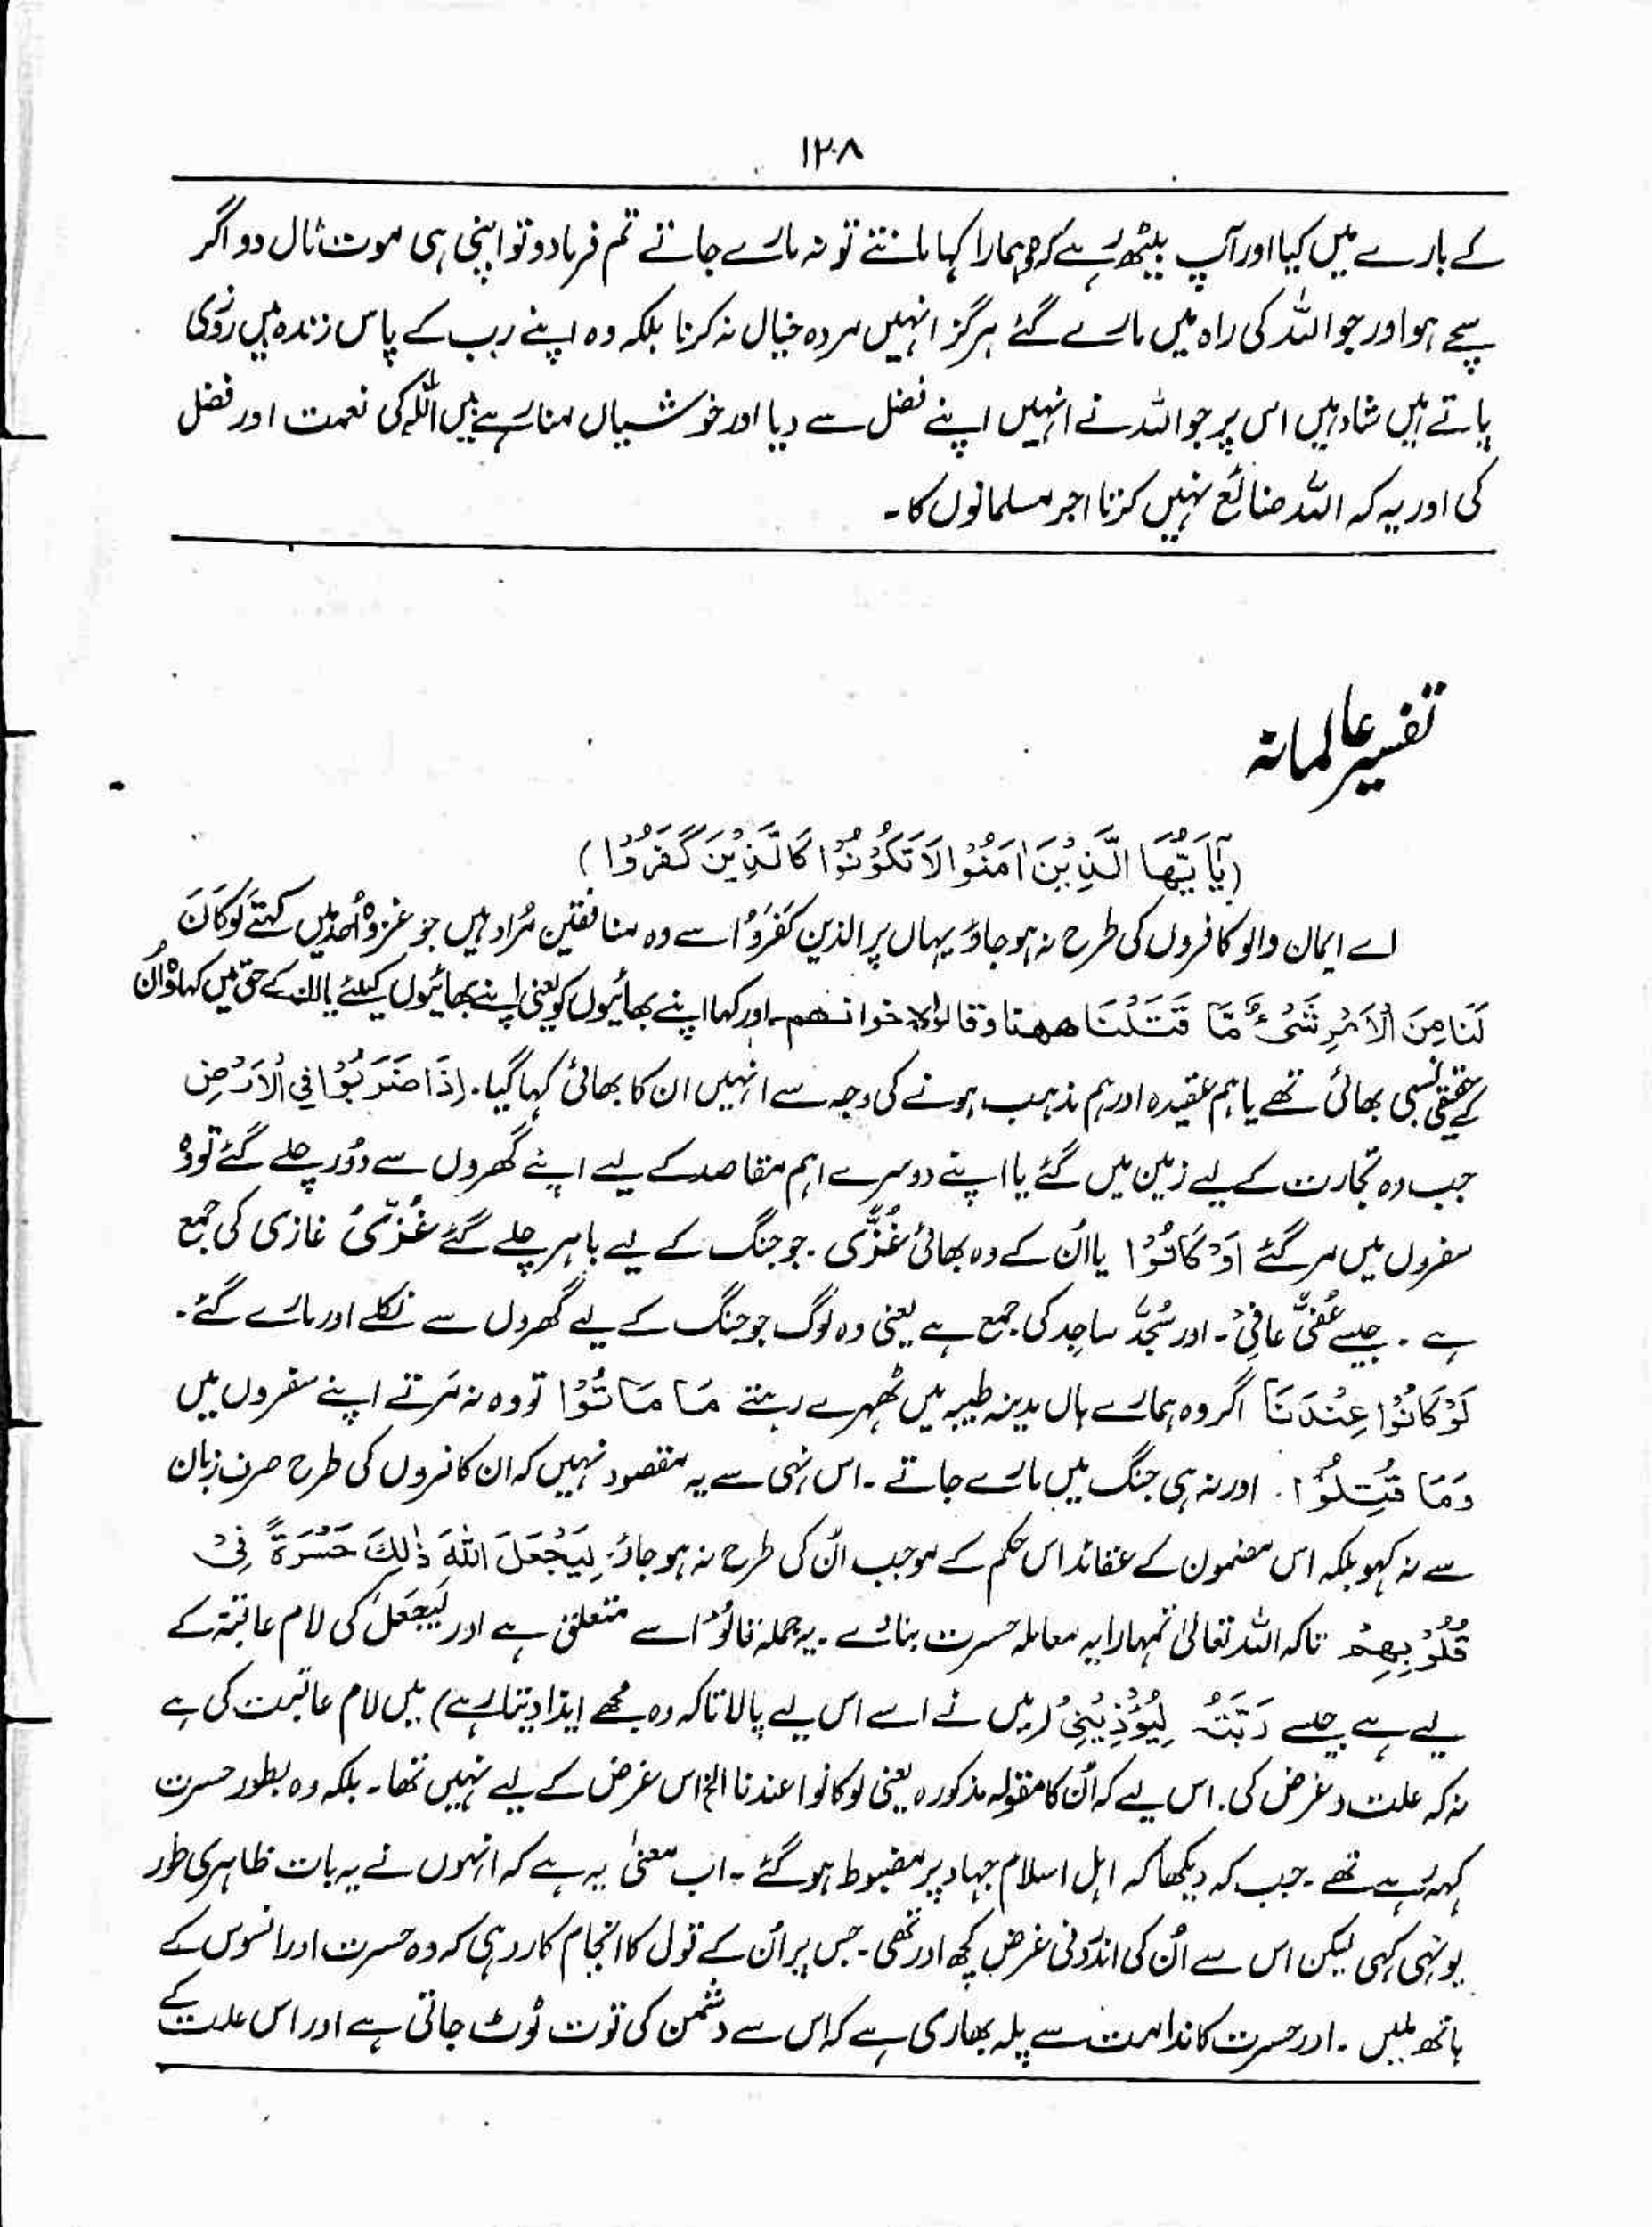 ۱۲۰۸
کے بارے میں کہا اور آپ بیٹھ رہے کہ وہ ہمارا کہا مانتے تو نہ مارے جاتے تم فرما دو تو اپنی ہی موت ٹال دو اگر
سچے ہو اور جو اللہ کی راہ میں مارے گئے ہرگز انہیں مردہ خیال نہ کرنا بلکہ وہ اپنے رب کے پاس زندہ ہیں روزی
پاتے ہیں شاد ہیں اس پر جو اللہ نے انہیں اپنے فضل سے دیا اور خوشیاں منا رہے ہیں اللہ کی نعمت اور فضل
کی اور یہ کہ اللہ ضائع نہیں کرتا اجر مسلمانوں کا ۔
تفسیر عالمانہ
(یٰٓاَیُّهَا الَّذِیْنَ اٰمَنُوْا لَا تَكُوْنُوْا كَالَّذِیْنَ كَفَرُوْا)
اے ایمان والو کافروں کی طرح نہ ہو جاؤ یہاں پر الذین کَفَرُوْا سے وہ منافقین مُراد ہیں جو غزوۂ اُحد میں کہتے لَوْ كَانَ
لَنَا مِنَ الْاَمْرِ شَیْءٌ مَّا قُتِلْنَا ههنا وقالوا لاخوانهم ۔ اور کہا اپنے بھائیوں کو یعنی اپنے بھائیوں کیلئے یا ان کے حق میں کہا وہ اُن
کے حقیقی نسبی بھائی تھے یا ہم عقیدہ اور ہم مذہب ہونے کی وجہ سے انہیں ان کا بھائی کہا گیا ۔ اِذَا ضَرَبُوْا فِی الْاَرْضِ
جب وہ تجارت کے لیے زمین میں گئے یا اپنے دوسرے اہم مقاصد کے لیے اپنے گھروں سے دُور چلے گئے تو وہ
سفروں میں مر گئے اَوْ كَانُوْا یا اُن کے وہ بھائی غُزًّی ۔ جو جنگ کے لیے باہر چلے گئے غُزًّی غازی کی جمع
ہے ۔ جیسے عُفًّی عافِیْ ۔ اور سُجَّدٌ ساجد کی جمع ہے یعنی وہ لوگ جو جنگ کے لیے گھروں سے نکلے اور مارے گئے ۔
لَوْ كَانُوْا عِنْدَنَا اگر وہ ہمارے ہاں مدینہ طیبہ میں ٹھہرے رہتے مَا مَاتُوْا تو وہ نہ مَرتے اپنے سفروں میں
وَمَا قُتِلُوْا ۔ اور نہ ہی جنگ میں مارے جاتے ۔ اس نہی سے یہ مقصود نہیں کہ ان کافروں کی طرح صرف زبان
سے نہ کہو بلکہ اس مضمون کے عقائد اس حکم کے موجب اُن کی طرح نہ ہو جاؤ ۔ لِیَجْعَلَ اللّٰهُ ذٰلِكَ حَسْرَةً فِیْ
قُلُوْبِهِمْ تاکہ اللہ تعالیٰ تمہارا یہ معاملہ حسرت بنائے ۔ یہ جملہ قَالُوْا سے متعلق ہے اور لِیَجْعَلَ کی لام عاقبۃ کے
لیے ہے جیسے رَبَّیْتُہٗ لِیُؤْذِیْنِیْ (میں نے اسے اس لیے پالا تاکہ وہ مجھے ایذا دیتا رہے) میں لام عاقبت کی ہے
نہ کہ علت و غرض کی ۔ اس لیے کہ اُن کا مقولہ مذکورہ یعنی لو کانوا عندنا الخ اس غرض کے لیے نہیں تھا ۔ بلکہ وہ بطور حسرت
کہہ رہے تھے ۔ جب کہ دیکھا کہ اہل اسلام جہاد پر مضبوط ہو گئے ۔ اب معنیٰ یہ ہے کہ انہوں نے یہ بات ظاہری طور
یونہی کہی لیکن اس سے اُن کی اندرونی غرض کچھ اور تھی ۔ جس پر اُن کے قول کا انجام کار رہی کہ وہ حسرت اور افسوس کے
ہاتھ ملیں ۔ اور حسرت کا ندامت سے پلہ بھاری ہے کہ اس سے دشمن کی قوت ٹوٹ جاتی ہے اور اس علت کے